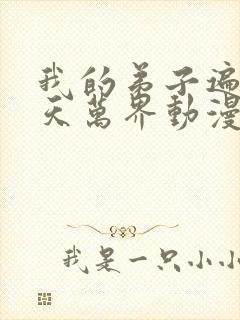 我的弟子遍
天萬界動漫
我是一只小小